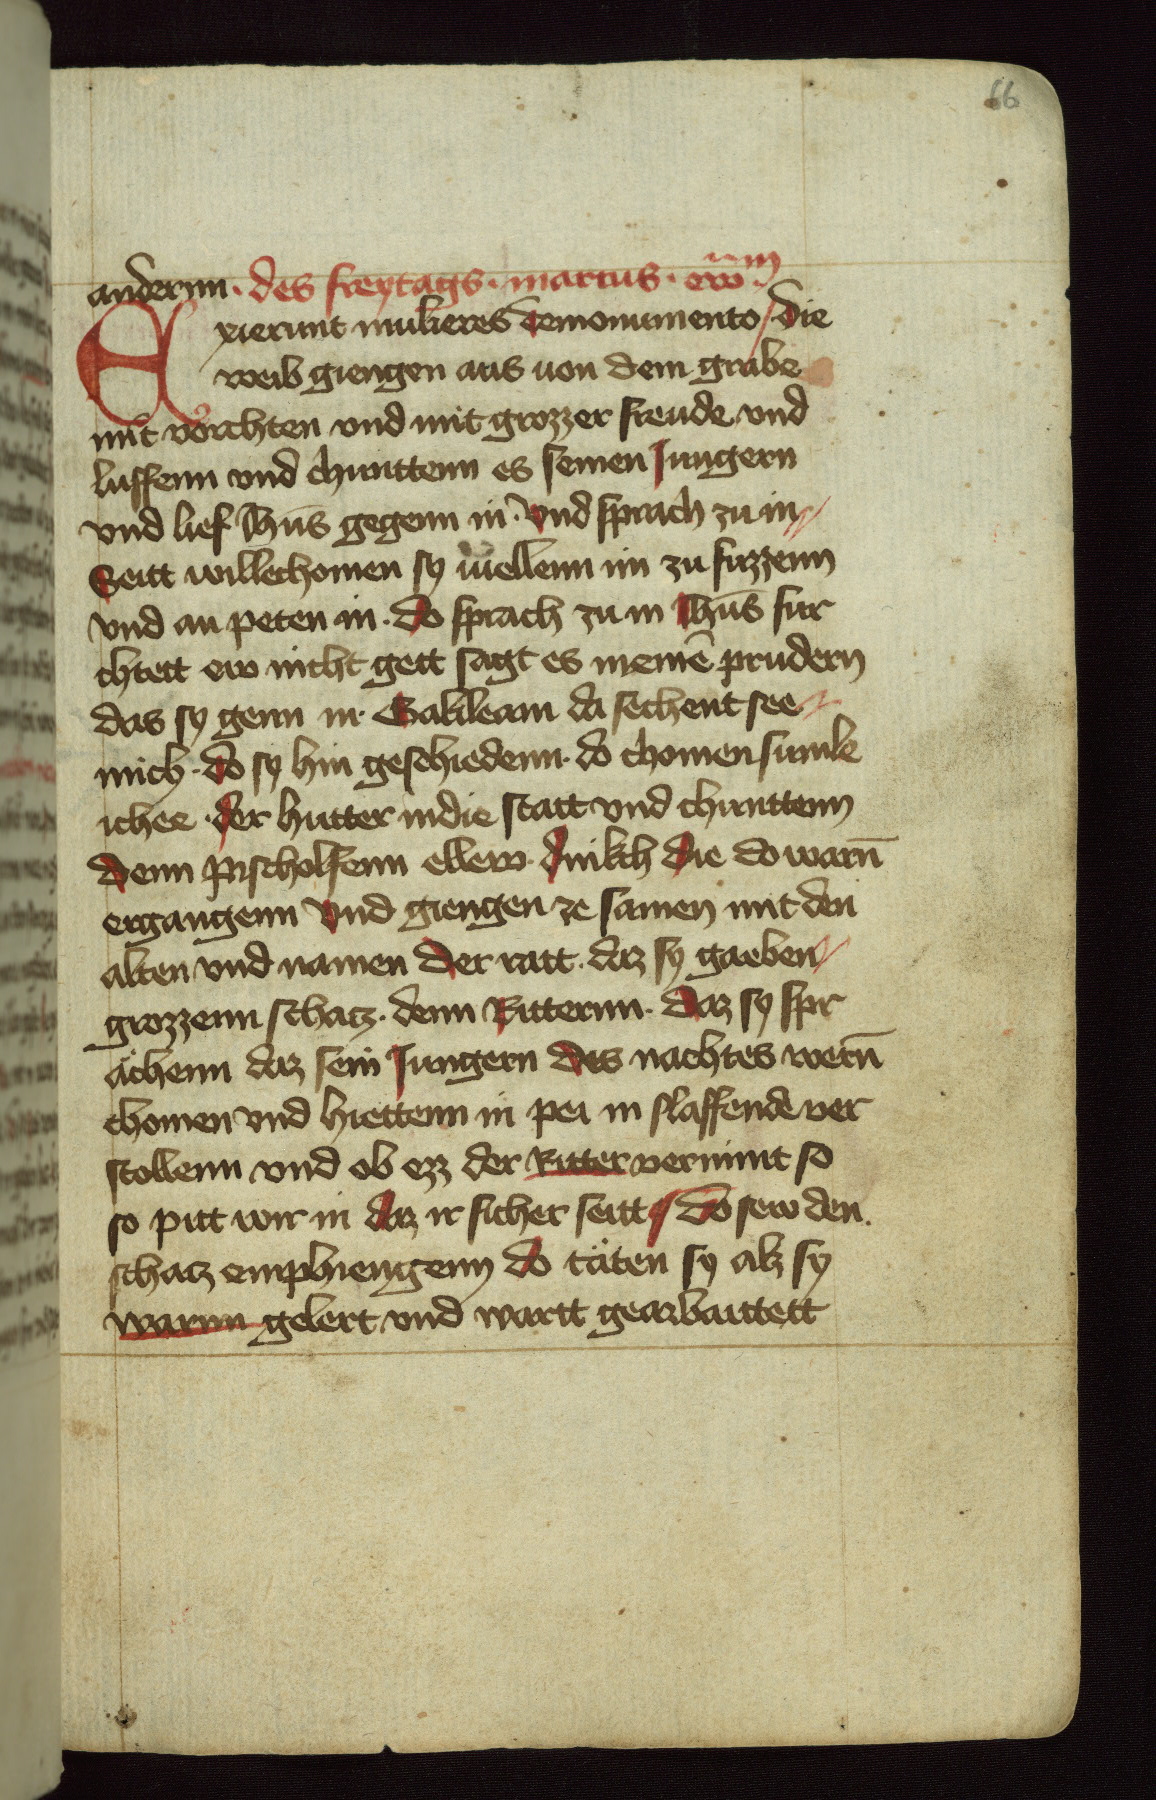 66
andernn · des freytags · martus · ew̄m
Exierunt mulieres demonumento / die
weib giengen aus uon dem grabe
mit vorchten vnd mit grozzer freude vnd
luffenn vnd chunttenn es seinen Jungern
vnd lief Jhūs gegenn in · vnd sprach zu in
Seitt willechomen sy viellenn im zu fuzzenn
vnd an peten in · do sprach zu in Jhūs fur
chtett ew nicht gett sagt es meinē prudern
das sy genn in Galileam da sechent see
mich · do sy hin geschiedenn · do chomen sumle
ichee · der hutter in die statt vnd chunttenn
denn Pischolfenn ellew dinkch die do warn̄
ergangenn vnd giengen ze samen mit den
alten vnd namen der ratt · daz sy gaeben
grozzenn schatz · denn Ritternn · daz sy spr
ächenn daz sein Jungern des nachtes wern̄
chomen vnd hiettenn in pei in slaffende ver
stollenn vnd ob ezz der Ritter vernimt so
so pitt wir in daz ir sicher seitt do sew den
schatz emphiengenn do täten sy alz sy
warnn gelert vnd wartt gearbaittett